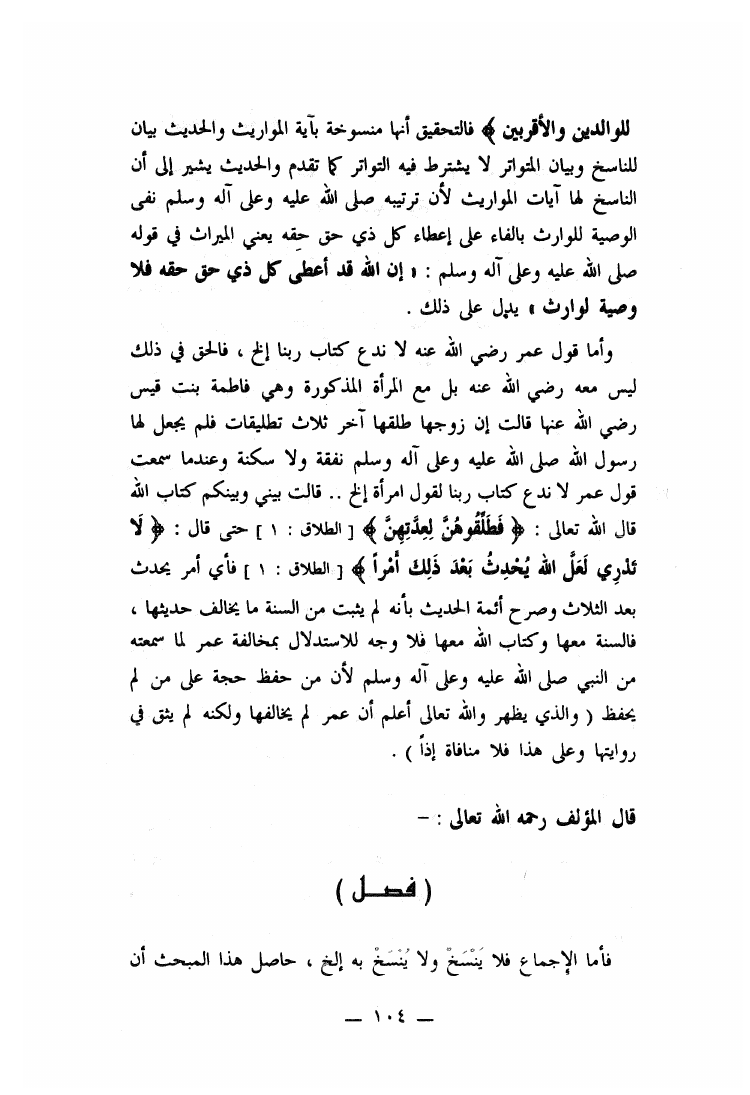 للوالدين والأقربين ﴾ فالتحقيق أنها منسوخة بآية المواريث والحديث بيان
للناسخ وبيان المتواتر لا يشترط فيه التواتر كما تقدم والحديث يشير إلى أن
الناسخ لها آيات المواريث لأن ترتيبه صلى الله عليه وعلى آله وسلم نفى
الوصية للوارث بالفاء على إعطاء كل ذي حق حقه يعني الميراث في قوله
صلى الله عليه وعلى آله وسلم : « إن الله قد أعطى كل ذي حق حقه فلا
وصية لوارث » يدل على ذلك .
وأما قول عمر رضي الله عنه لا ندع كتاب ربنا إلخ ، فالحق في ذلك
ليس معه رضي الله عنه بل مع المرأة المذكورة وهي فاطمة بنت قيس
رضي الله عنها قالت إن زوجها طلقها آخر ثلاث تطليقات فلم يجعل لها
رسول الله صلى الله عليه وعلى آله وسلم نفقة ولا سكنة وعندما سمعت
قول عمر لا ندع كتاب ربنا لقول امرأة إلخ .. قالت بيني وبينكم كتاب الله
قال الله تعالى : ﴿ فَطَلِّقُوهُنَّ لِعِدَّتِهِنَّ ﴾ [ الطلاق : ١ ] حتى قال : ﴿ لَا
تَدْرِي لَعَلَّ الله يُحْدِثُ بَعْدَ ذَلِكَ أَمْراً ﴾ [ الطلاق : ١ ] فأي أمر يحدث
بعد الثلاث وصرح أئمة الحديث بأنه لم يثبت من السنة ما يخالف حديثها ،
فالسنة معها وكتاب الله معها فلا وجه للاستدلال بمخالفة عمر لما سمعته
من النبي صلى الله عليه وعلى آله وسلم لأن من حفظ حجة على من لم
يحفظ ( والذي يظهر والله تعالى أعلم أن عمر لم يخالفها ولكنه لم يثق في
روايتها وعلى هذا فلا منافاة إذاً ) .
قال المؤلف رحمه الله تعالى : –
( فصل )
فأما الإجماع فلا يَنْسَخْ ولا يُنْسَخْ به إلخ ، حاصل هذا المبحث أن
— ١٠٤ —